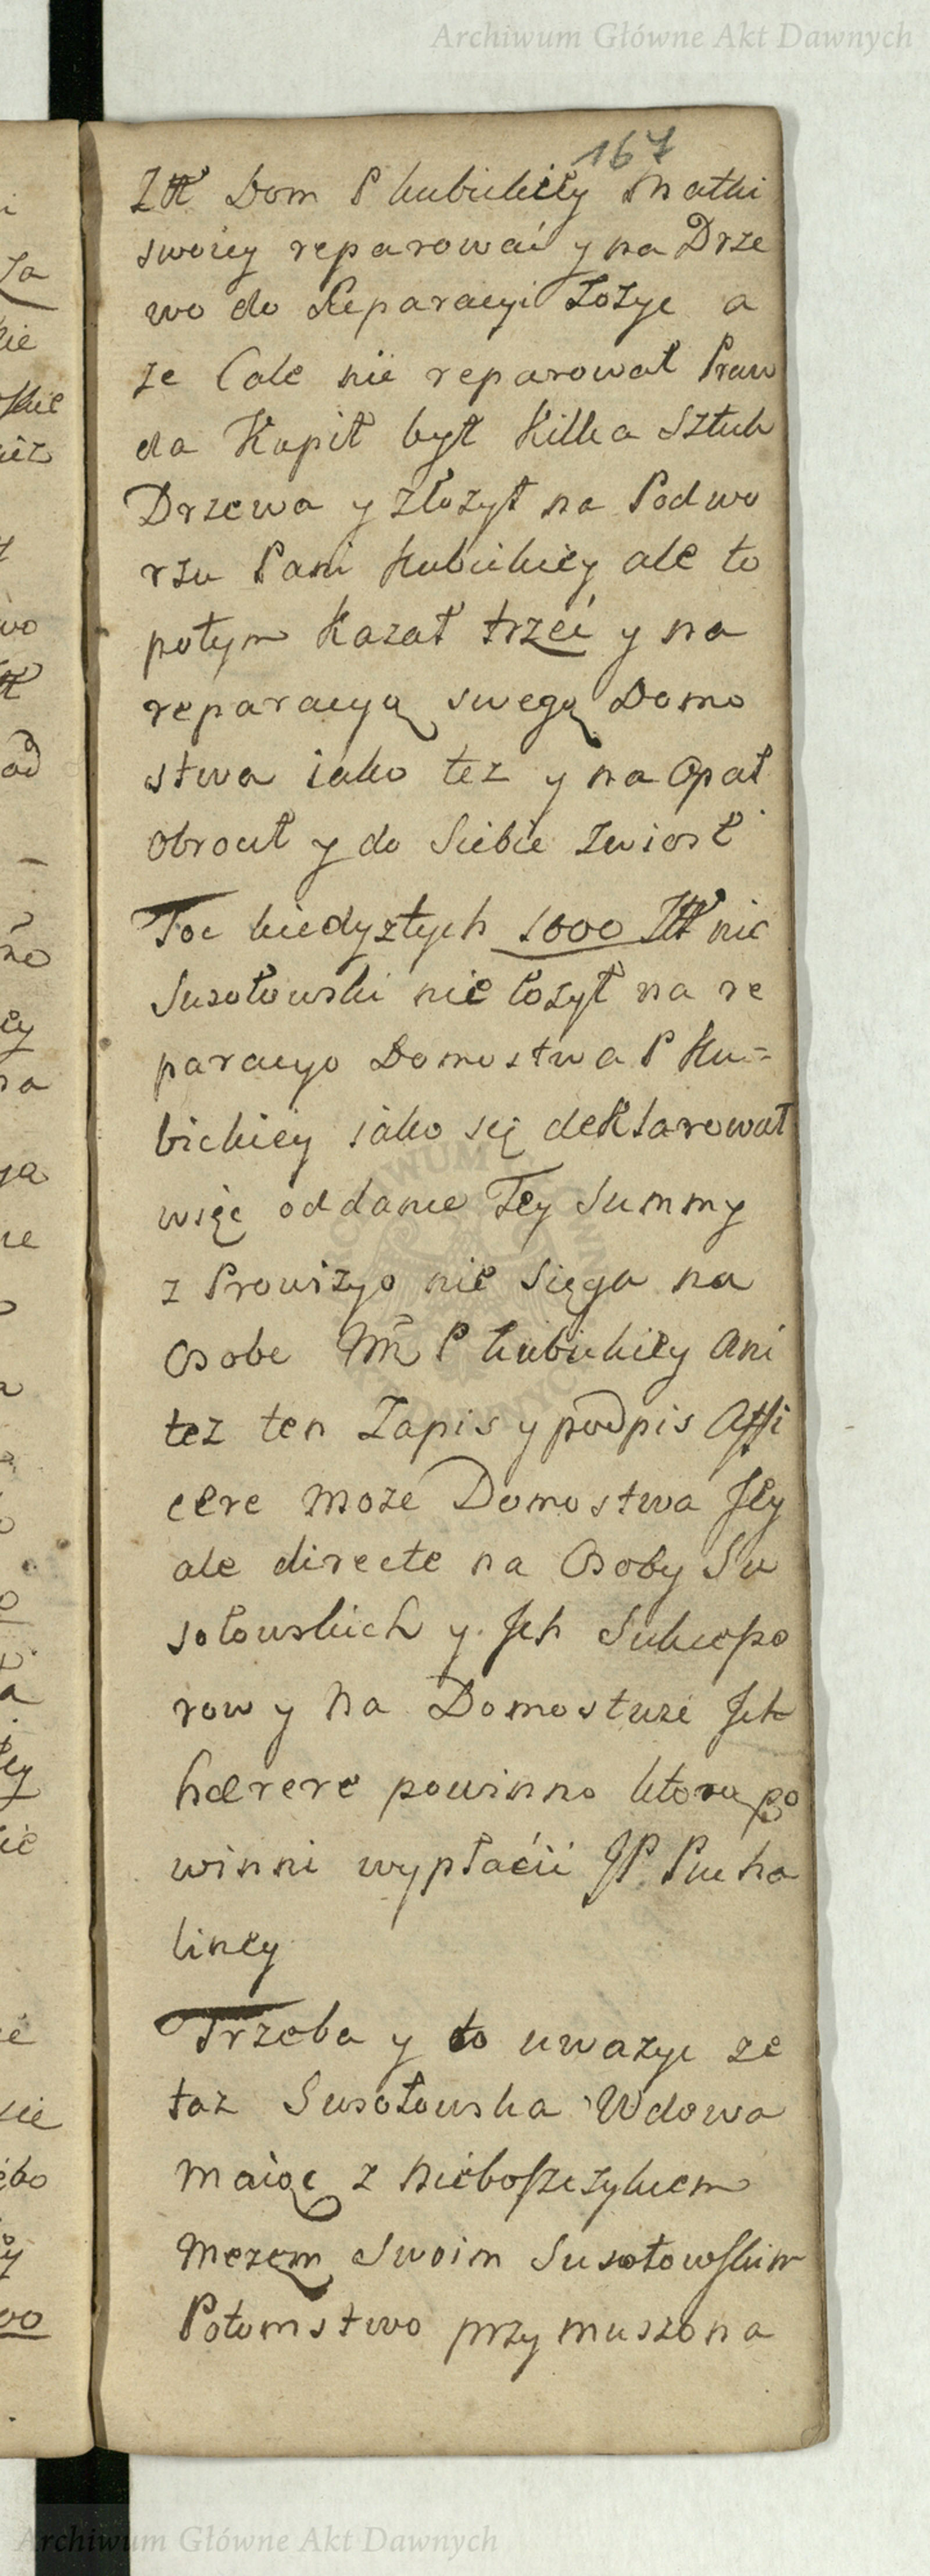 Archiwum Główne Akt Dawnych
167
Złł Dom P Kubickiey Matki
swoiey reparować y na Drze
wo do Reparacyi Łożyc a
ze Cale nie reparował Praw
da Kupił był Kilka Sztuk
Drzewa y złożył na Podwo
rzu Pani Kubickiey ale to
potym Kazał trzeć y na
reparacyą swegą Domo
stwa iako tez y na Opał
Obrocił y do Siebie Zwiosł
Toć kiedyztych 1000 Złł nic
Susołowski nie łożył na re
paracyo Domostwa P Ku=
bickiey iako się deklarował
więc oddanie Tey Summy
z Prowizyo nie Sięga na
Osobe P Kubickiey Ani
tez ten Zapis y podpis Affi
cere może Domostwa Jey
ale directe na Osoby Su
sołowskich y Jch Sukcesso
row y Na Domostwie Jch
hærere powinno ktoru po
winni wypłacić JP Pucha
liney
Trzeba y to uwazyc ze
taz Susołowska Wdowa
Maiąc z Nieboszczykiem
Męzem Swoim Susołowskim
Potomstwo przymuszona
Archiwum Główne Akt Dawnych